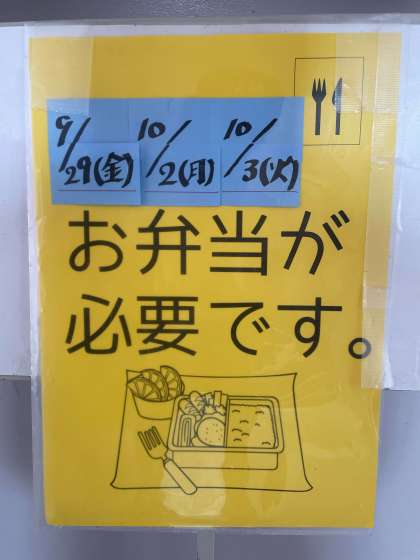 9/29(金) 10/2(月) 10/3(火)
お弁当が
必要です。